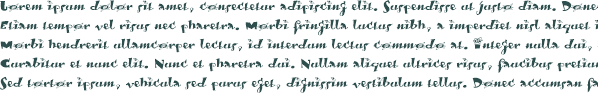 Lorem ipsum dolor sit amet, consectetur adipiscing elit. Suspendisse ut justo diam. Done
Etiam tempor vel risus nec pharetra. Morbi fringilla luctus nibh, a imperdiet nisl aliquet i
Morbi hendrerit ullamcorper lectus, id interdum lectus commodo at. Integer nulla dui,
Curabitur et nunc elit. Nunc et pharetra dui. Nullam aliquet ultrices risus, faucibus pretiu
Sed tortor ipsum, vehicula sed purus eget, dignissim vestibulum tellus. Donec accumsan fa